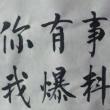 你有事
我爆料